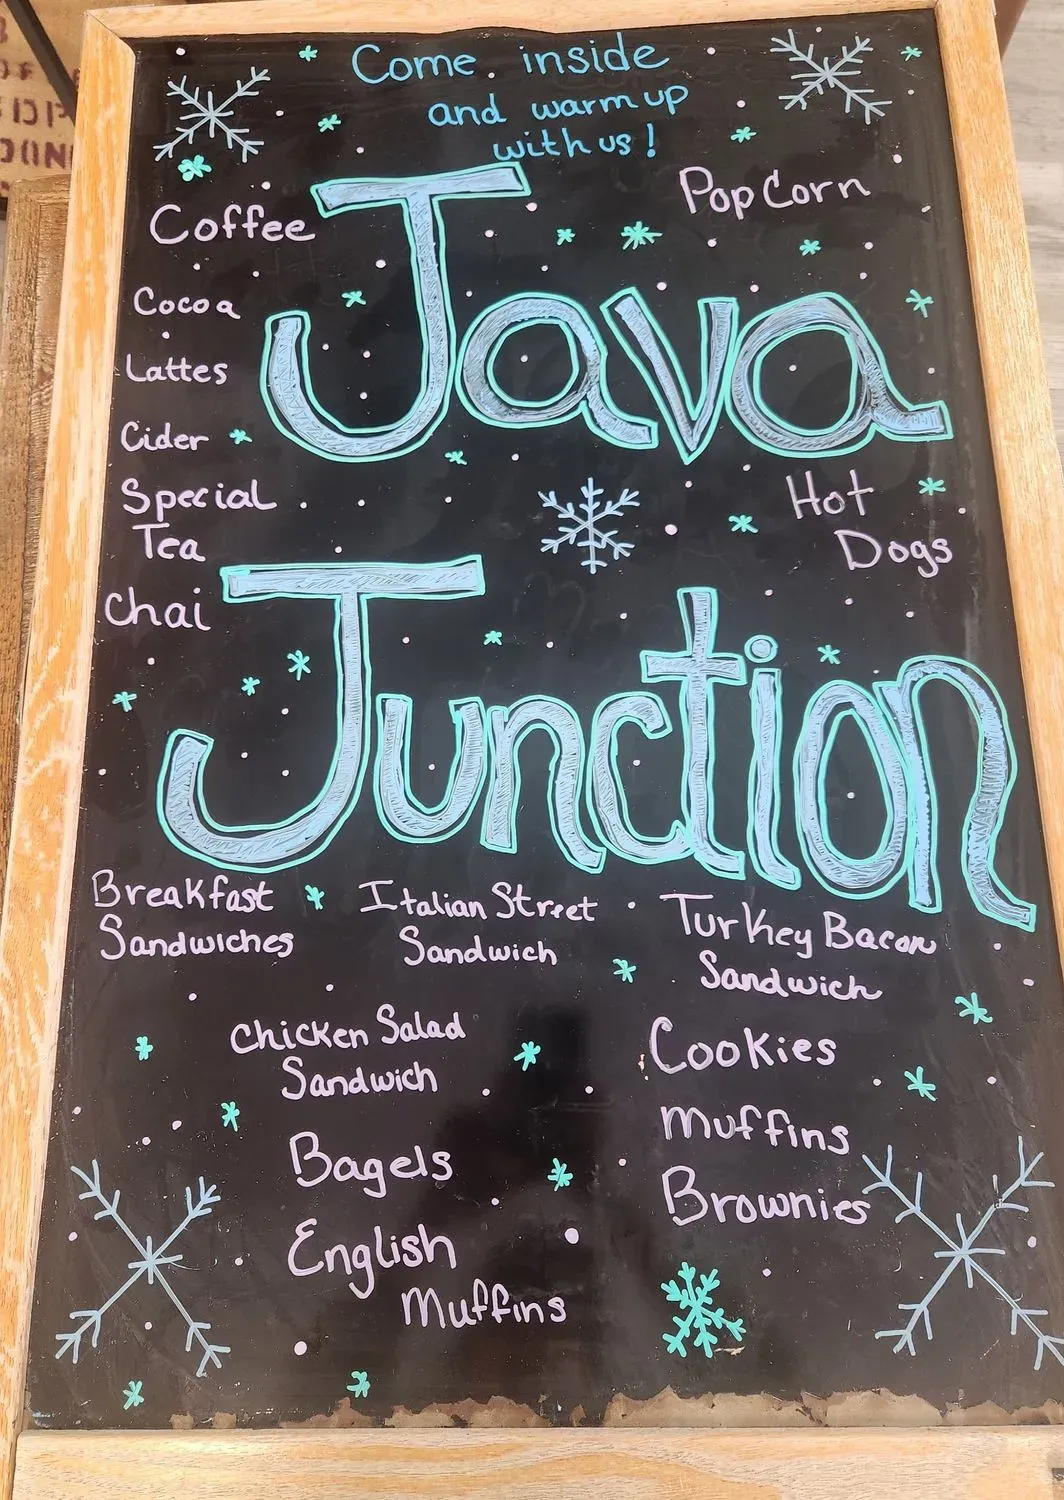 Come inside
and warm up
with us!
Coffee
PopCorn
Java
Cocoa
Lattes
Cider
Special
Tea
Hot
Dogs
Chai
Junction
Breakfast
Sandwiches
Italian Street
Sandwich
Turkey Bacon
Sandwich
Chicken Salad
Sandwich
Cookies
Muffins
Bagels
Brownies
English
Muffins